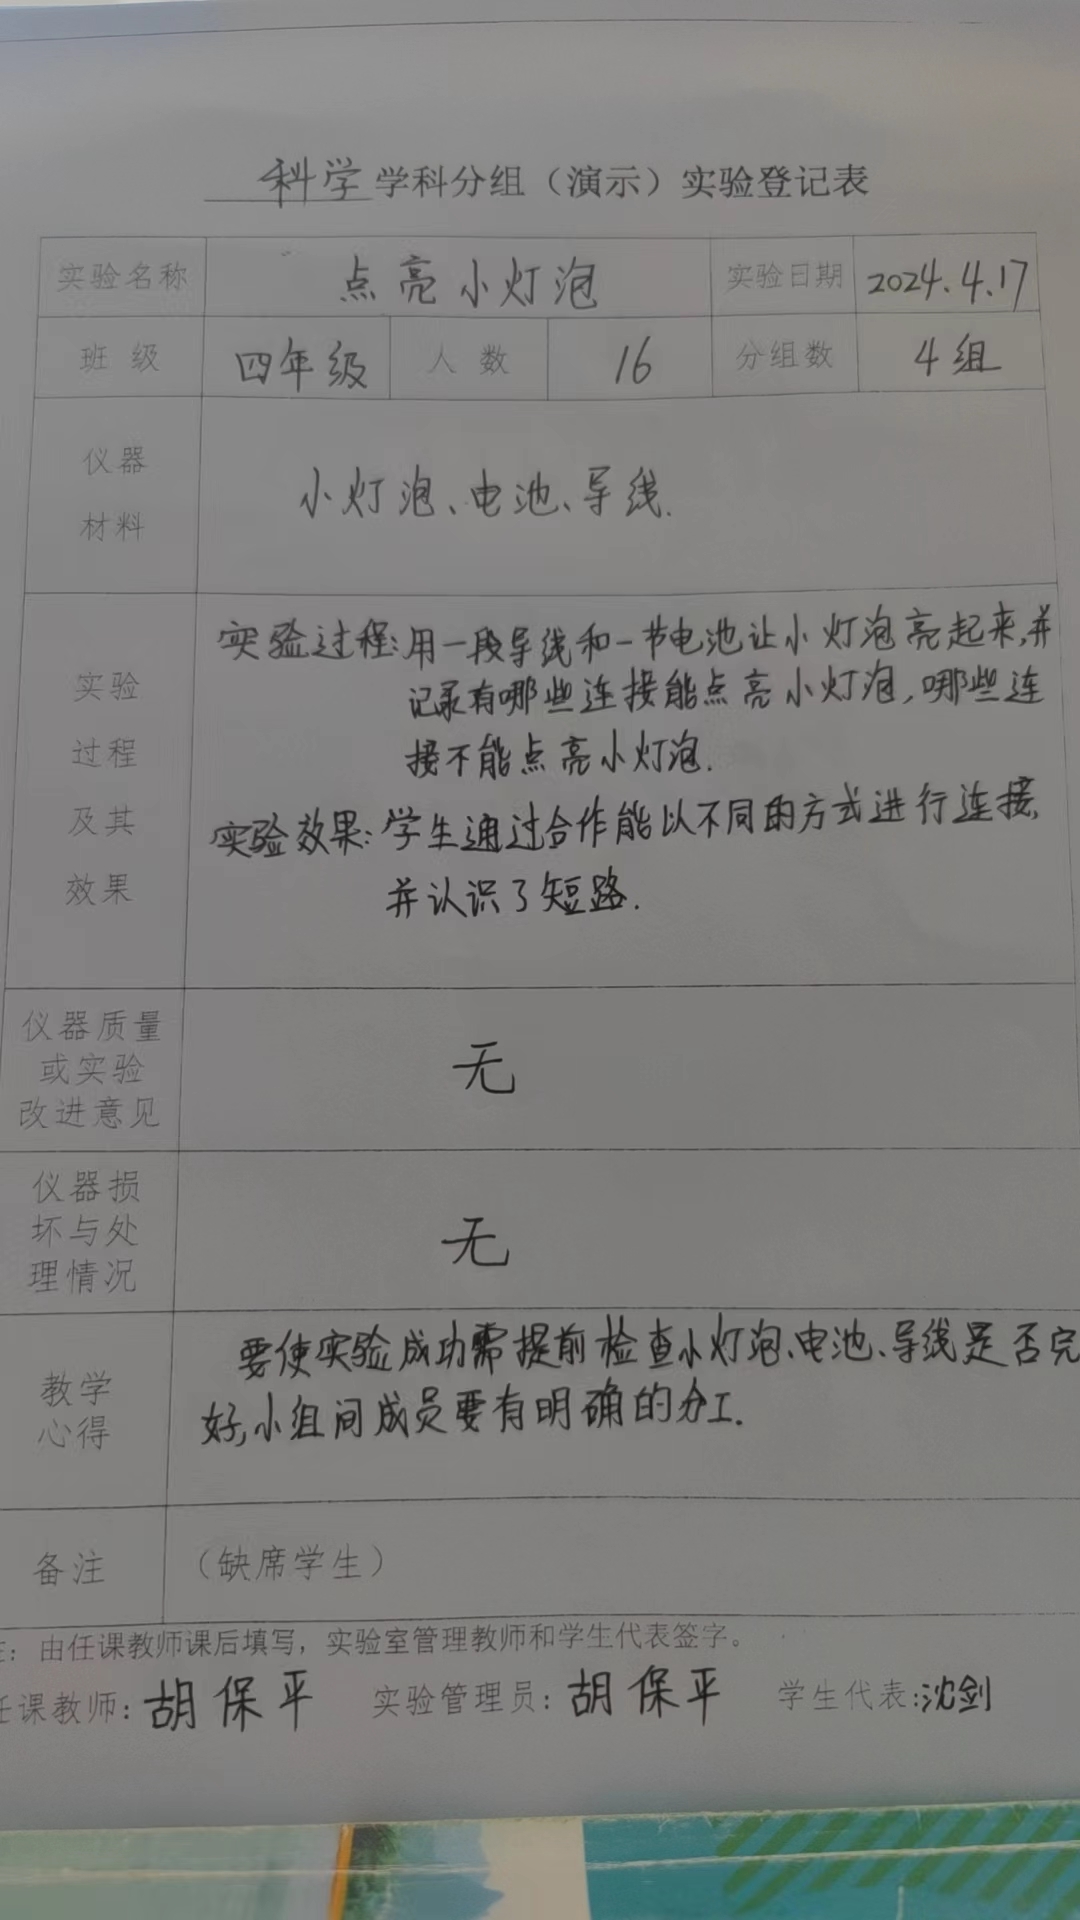 科学学科分组（演示）实验登记表
实验名称 点亮小灯泡 实验日期 2024.4.17
班级 四年级 人数 16 分组数 4组
仪器
材料
小灯泡、电池、导线.
实验
过程
及其
效果
实验过程:用一段导线和一节电池让小灯泡亮起来,并
记录有哪些连接能点亮小灯泡,哪些连
接不能点亮小灯泡.
实验效果:学生通过合作能以不同的方式进行连接,
并认识了短路.
仪器质量
或实验
改进意见
无
仪器损
坏与处
理情况
无
教学
心得
要使实验成功需提前检查小灯泡、电池、导线是否完
好,小组间成员要有明确的分工.
备注 （缺席学生）
注：由任课教师课后填写，实验室管理教师和学生代表签字。
任课教师:胡保平 实验管理员:胡保平 学生代表:沈剑